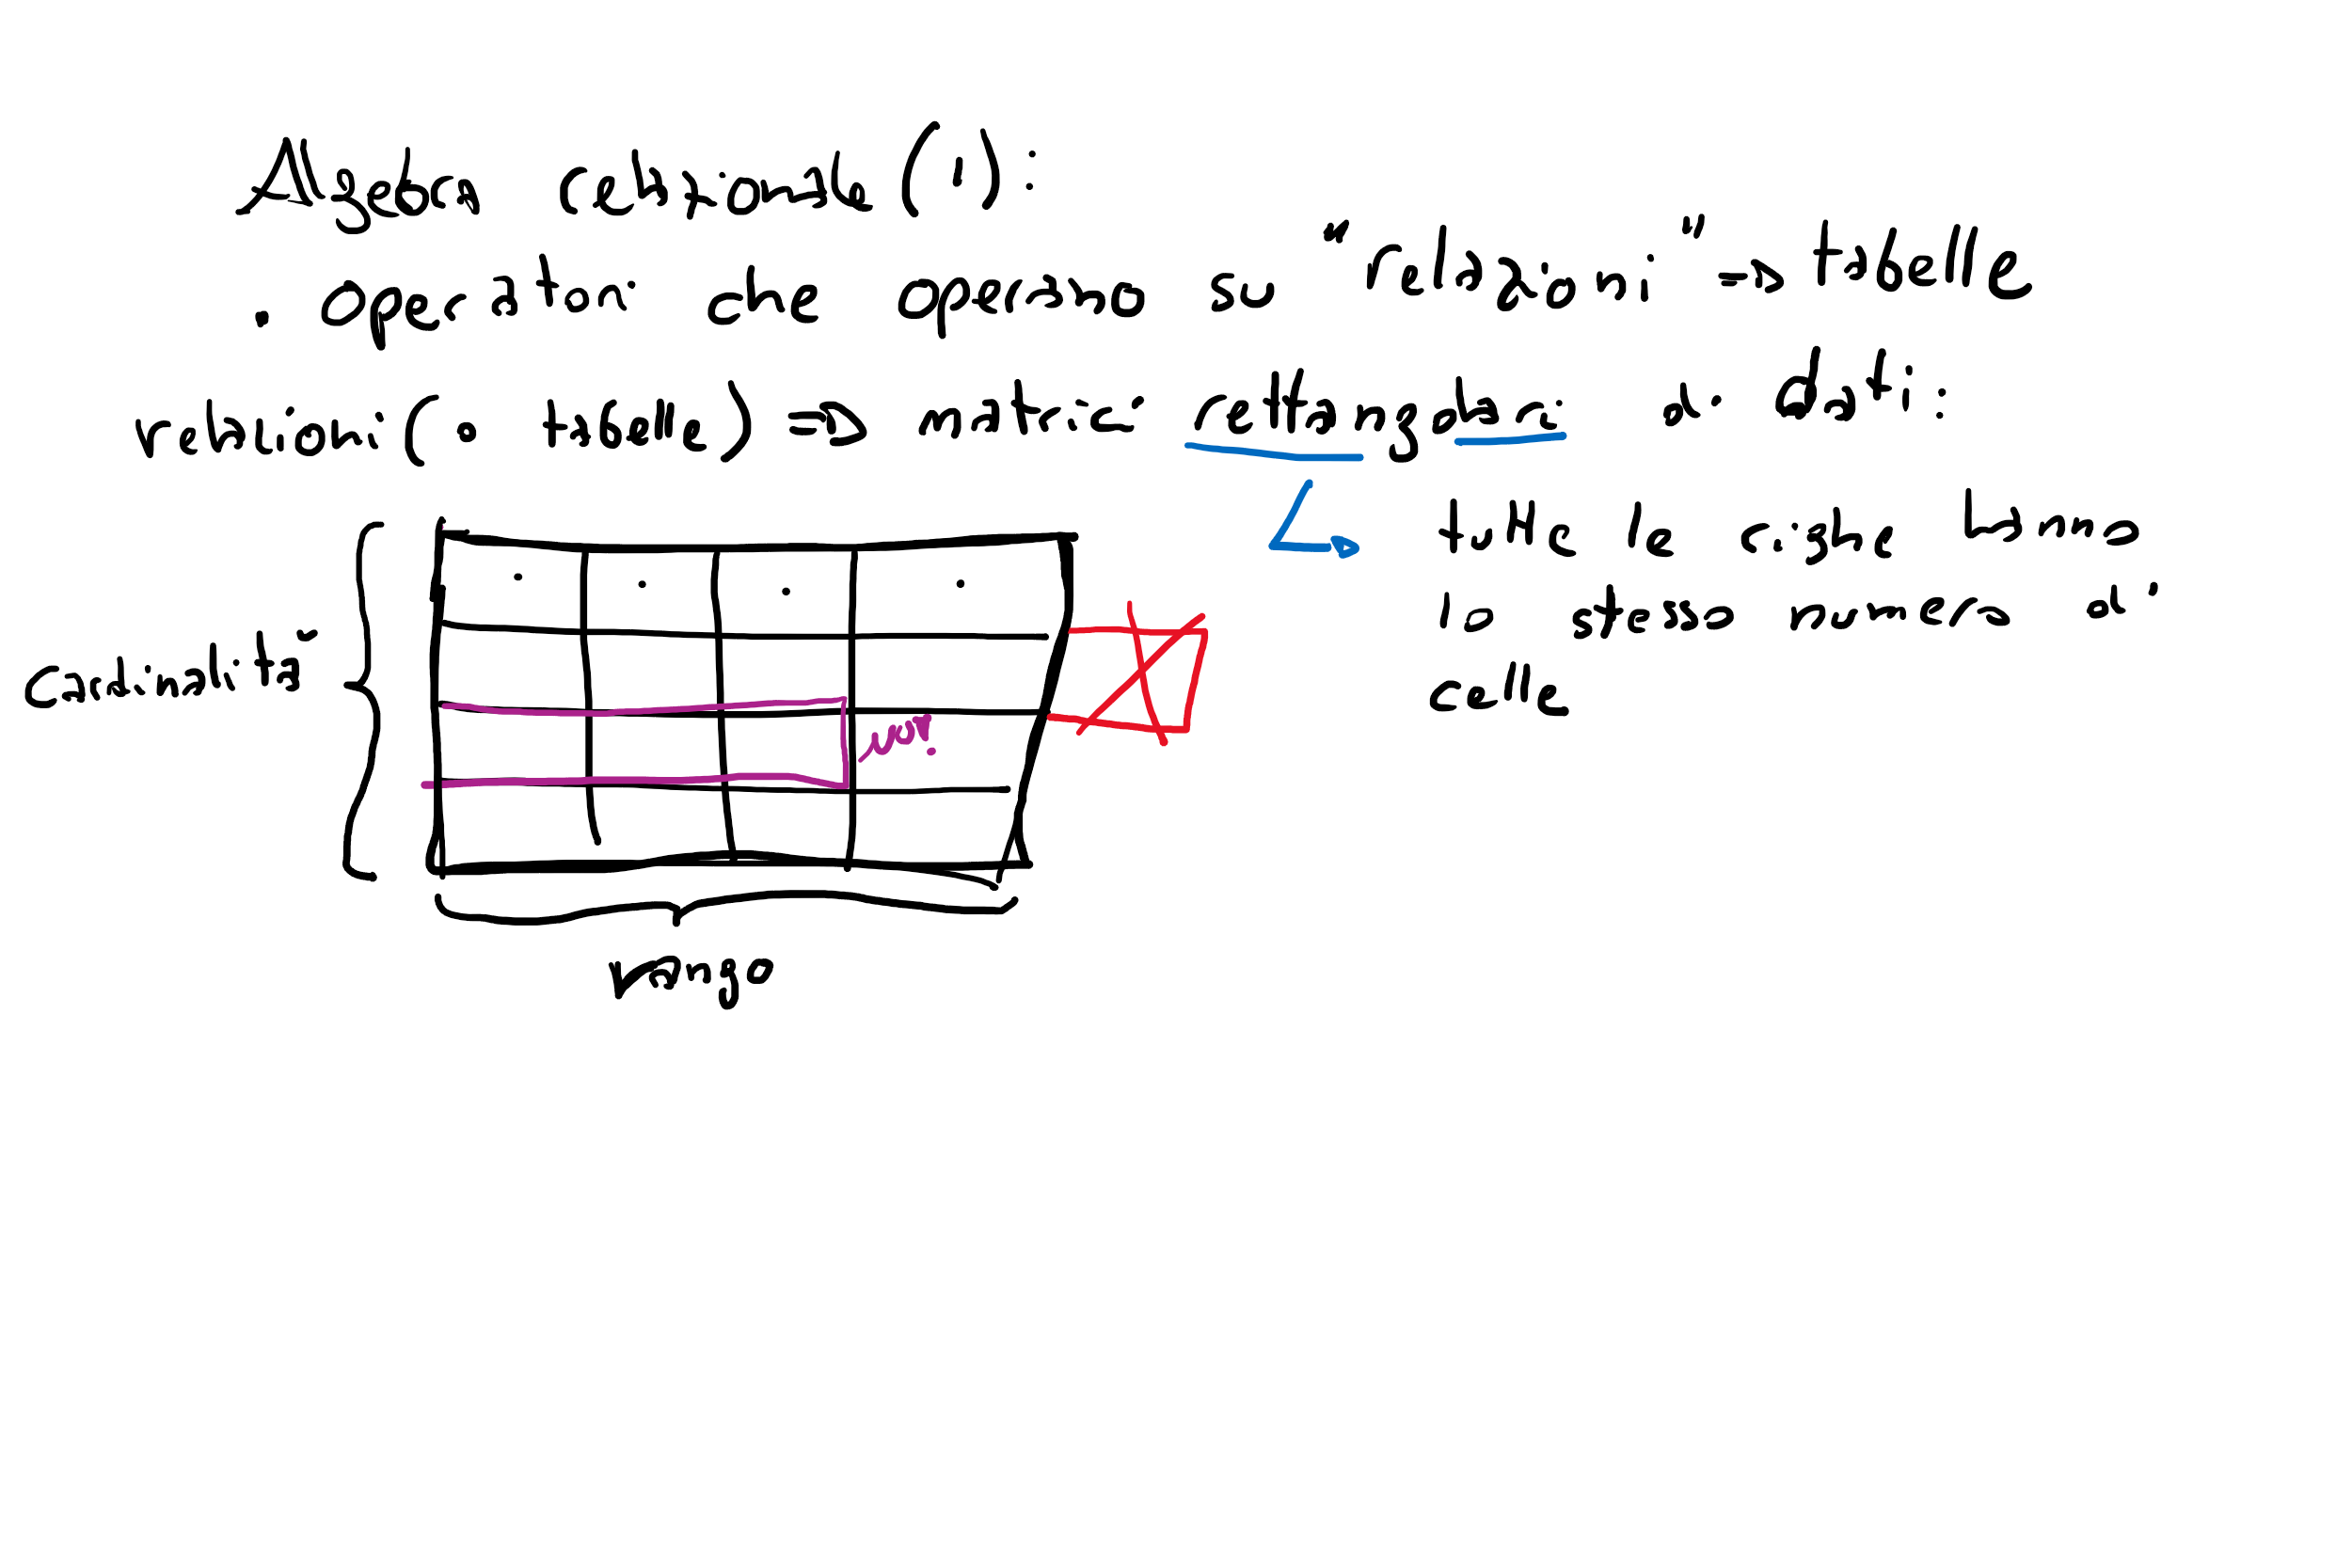 Algebra relazionale (1):
• operatori che operano su "relazioni" => tabelle
relazioni (o tabelle) => matrici rettangolari di dati:
tutte le righe hanno
lo stesso numero di
celle
Cardinalità
rango